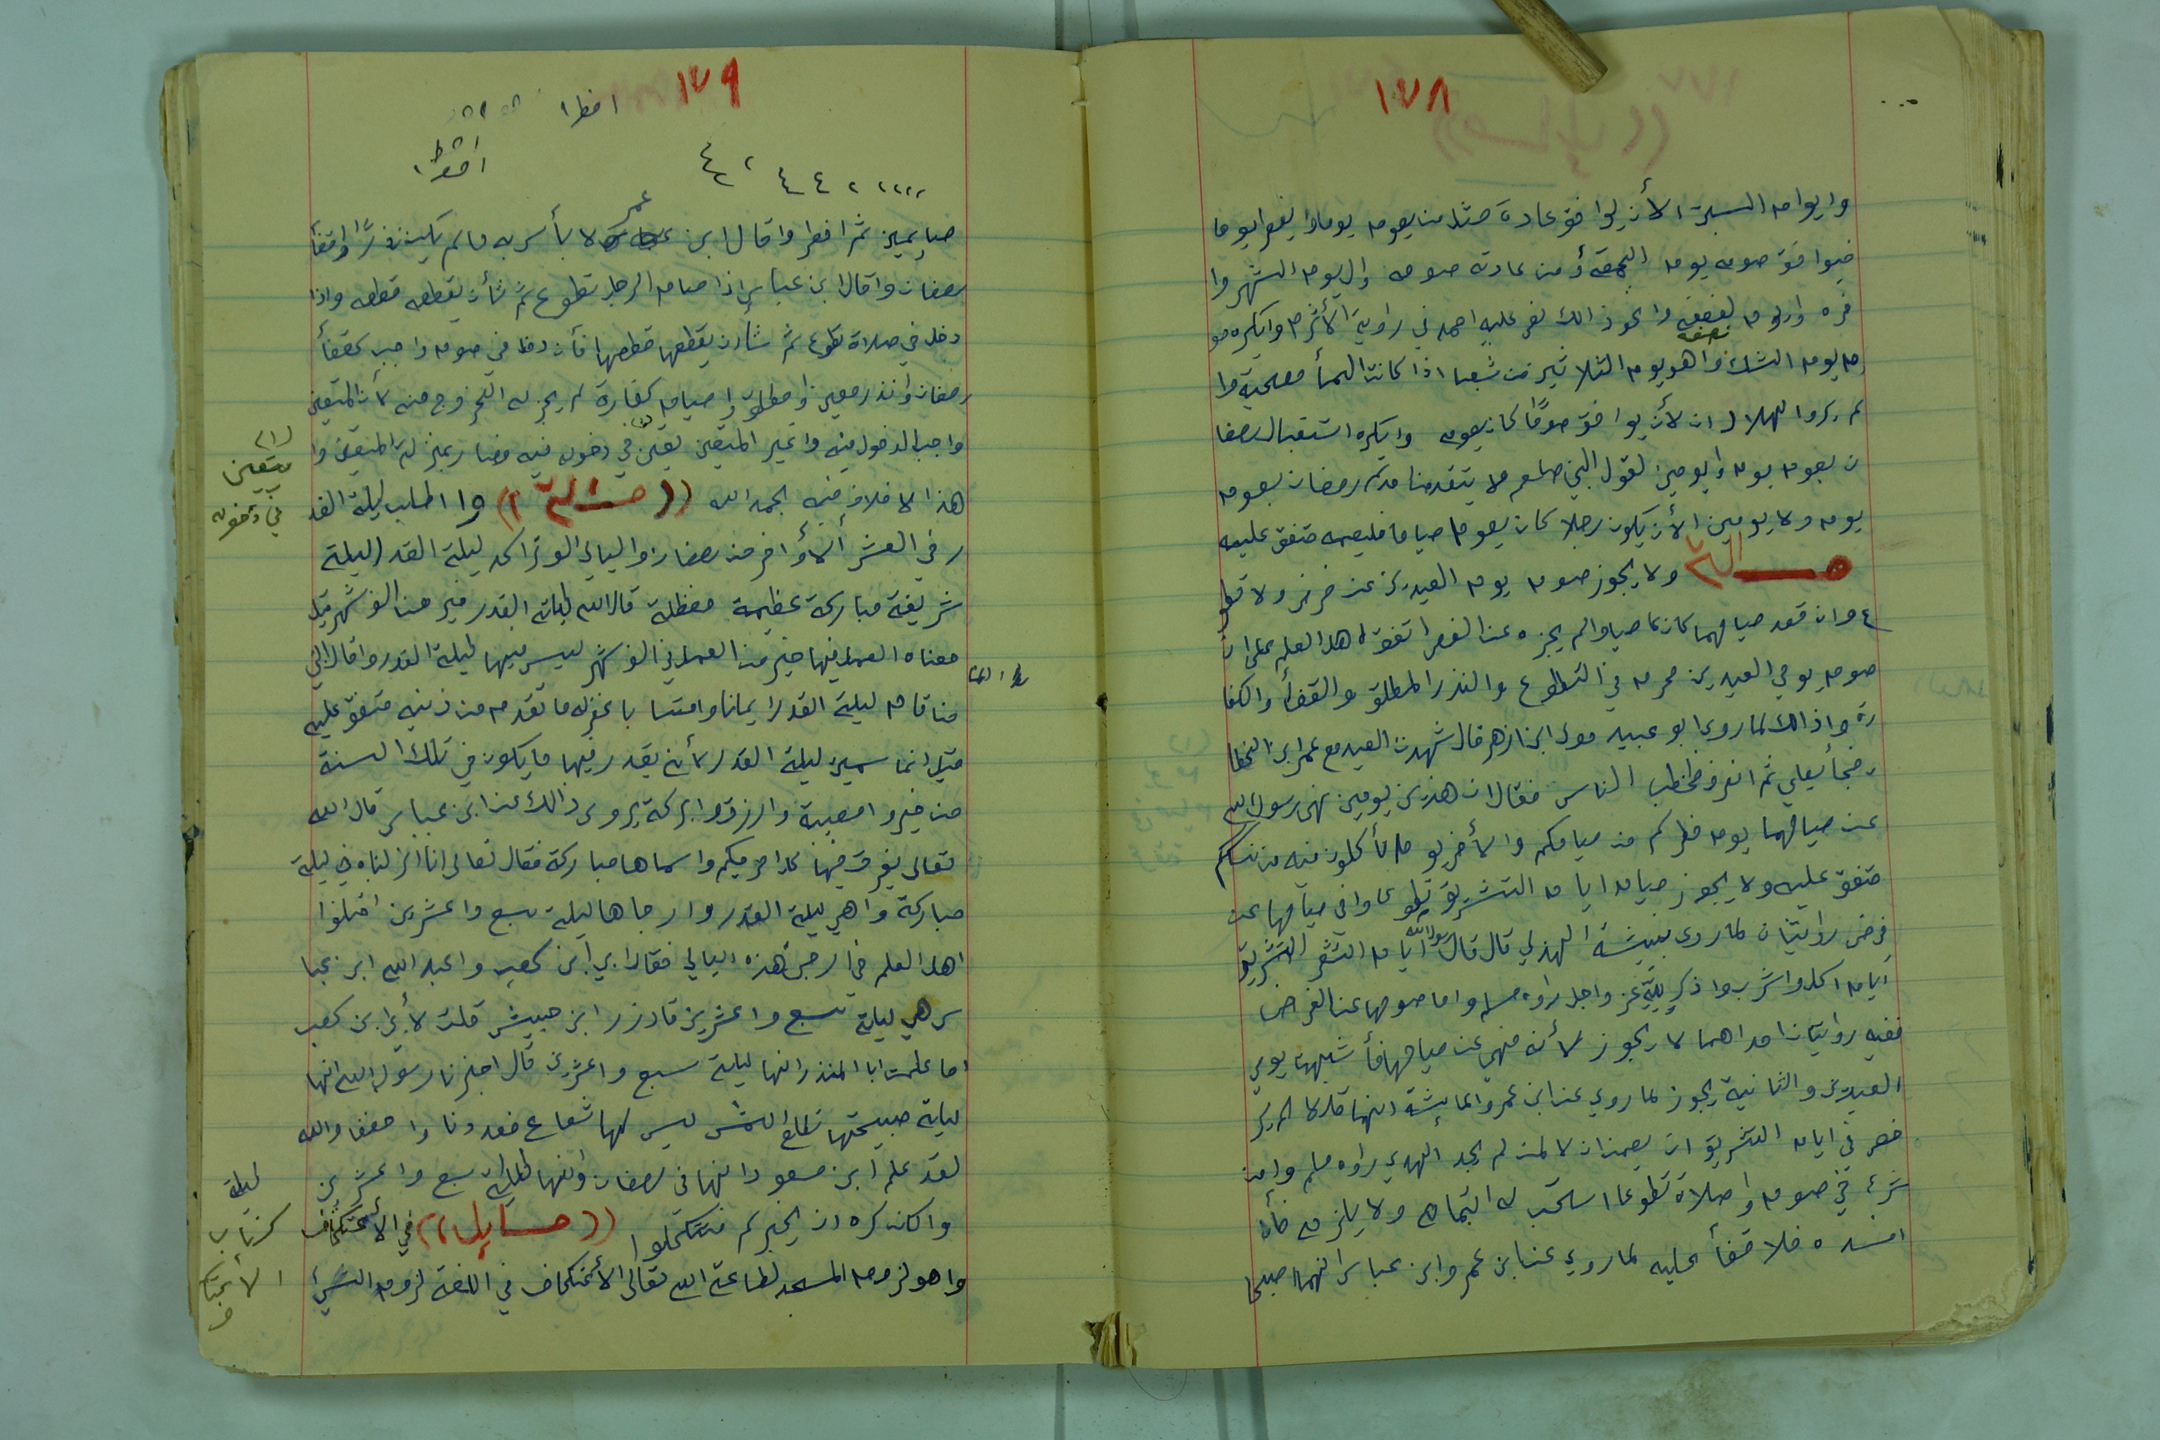 ١٧٨
وايوام السبت الأن يوا فق عادة مثل من يصوم يوما وا يفطر ايوما
فيوا فق صومه يوم الجمعة أ ومن عادته صومه وال يوم الشهر وا
خره واويوم لنصفه وا نحو ذالك نص عليه احمد في راوية الأثرم وايكره صو
م يوم الشك وا هو يوم الثلا ثين من شعبا اذا كانت السمأ مصحية وا
لم يروا الهلال ان لأن يوا فق صومًا كان يصومه وايكره استقبال رمضا
ن بصوم يوم وا يومين لقول النبي صلعم لا يتقدمنا حدكم رمضان بصوم
يوم ولا يومين الأن يكون رجلا كان يصوم صياما فليصمه متفق عليه
مسالة ولا يجوز صوم يوم العيدين عن فرض ولا تطو
ع وان قصد صيامهما كان عاصيا والم يجزه عن الفرض اتفق اهل العلم على ان
صوم يومي العيدين محرم في التطوع والنذر المطلق والقضأ والكفا
رة وا ذالك لما روى ابو عبيد مولى ابن ازهر قال شهدت العيد مع عمر ابن الخطا
ب فجأ يصلي ثم انصرف فخطب الناس فقال ان هذين يومين نهى رسول الله
عن صيامهما يوم فطركم من صيامكم والأخر يوم تأكلون فيه من نسككم
متفق عليه ولا يجوز صيام ايام التشريق تطوعا وا في صيامها عن
فرض روايتان لما روى نبيشة الهذلي قال قال رسول الله ايام التشر التشريق
ايام اكل وا شرب وا ذكر لله عز وا جل راوه مسلم واما صومها عن الفرض
ففيه روايتان احداهما لا يجوز لأنه منهي عن صيامها فأ شبهت يومي
العيدين والثانية يجوز لما روي عن ابن عمر وا عايشة انهما قالا لم ير
خص في ايام التشريق ان يصمن ان لا لمن لم يجد الهدي راوه مسلم وا من
شرع في صوم وا صلاة تطوعا استحب له اتمامه ولا يلزمه فأن
افسده فلا قضأ عليه لما روي عن ابن عمر وابن عباس انهما اصبحا
١٧٩
افطرا
افطرا
صايمين ثم افطرا وا قال ابن عمر لا بأس به مالم يكن نذرًا وا قضأ
رمضان وا قال ابن عباس اذا صام الرجل تطوع ثم شأ ن يقطعه قطعه واذا
دخل في صلاة تطوع ثم شأ ن يقطعها قطعها فأن دخل في صوم واجب كقضأ
رمضان وا نذر معين وا مطلق وا صيام كفارة لم يجز له الخروج منه لأن المتعين
واجب الدخول فيه وا غير المتعين تعين في دخوله فيه فصار بمنزلة المتعين وا
هذا لا خلاف فيه بحمد الله (( مسالة )) وا اطلب ليلة القد
ر في العشر الأوأ خر من رمضان واليالي الوتر اكد ليلة القدر ليلة
شريفة مباركة عظيمة مفضلة قال الله ليلة القدر خير من الف شهر قيل
معناه العمل فيها خير من العمل في الف شهر ليس فيها ليلة القدر وا قال النبي
من قام ليلة القدر ايمانا وا حتسا با غفر له ما تقدم من ذنبه متفق عليه
قيل انما سميت ليلة القدر لأنه يقدر فيها ما يكون في تلك السنة
من خير وا مصيبة وا رزق وا بركة يروى ذالك عن ابن عباس قال الله
تعالى يفرق فيها كل امر حكيم وا سماها مباركة فقال تعالى انا انزلناه في ليلة
مباركة وا هي ليلة القدر وا ر جاها ليلة سبع وا عشرين اختلفوا
اهل العلم في ارجى هذه اليالي فقال ابي ابن كعب وا عبد الله ابن عبا
س هي ليلة سبع وا عشرين قا ل زر ابن حبيش قلت لأبي ابن كعب
اما علمت ابا المنذر انها ليلة سبع وا عشرين قال اخبرنا رسول الله انها
ليلة صبيحتها تطلع الشمس ليس لها شعاع فعد دنا وا حفضنا والله
لقد علم ابن مسعود انها في رمضان وانها ليلة سبع وا عشرين
وا كان كره ان يخبركم فتتكلوا (( مسايل )) في الأعتكاف
وا هو لزوم المسجد لطاعة الله تعالى الأعتكاف في اللغة لزوم الشي
يتعين
في دخوله
ليلة
كتاب
الأعتكا
ف